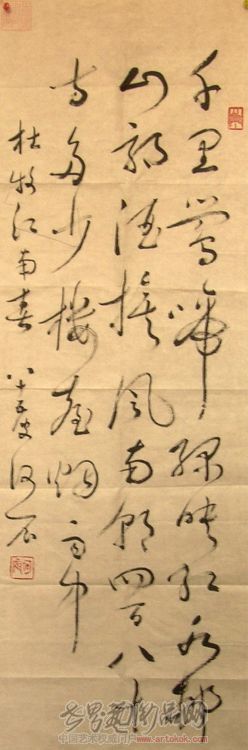 千里莺啼绿映红水村
山郭酒旗风南朝四百八十
寺多少楼台烟雨中
杜牧江南春
世界艺术品网
中国艺术权威门户 www.artokok.com